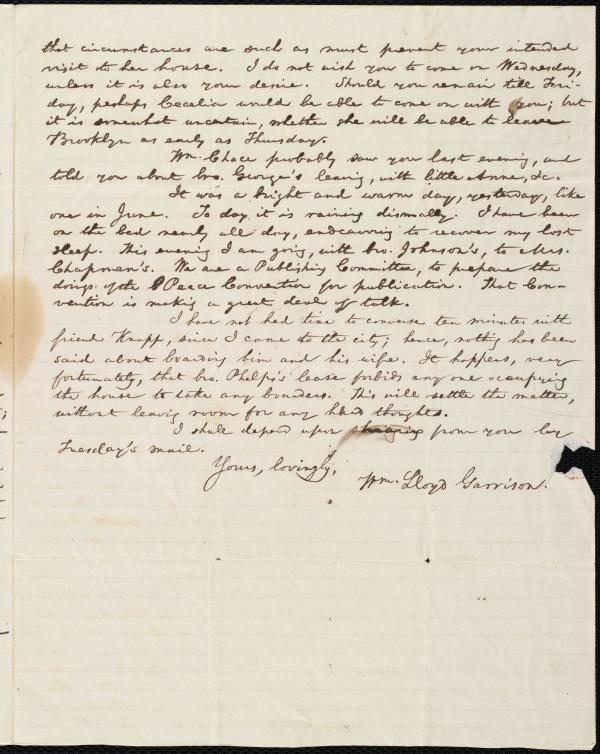 that circumstances are such as must prevent your intended
visit to her house. I do not wish you to come on Wednesday,
unless it is also your desire. Should you remain till Fri-
day, perhaps Cecelia would be able to come on with you; but
it is somewhat uncertain, whether she will be able to leave
Brooklyn as early as Thursday.
Wm. Chace probably saw you last evening, and
told you about bro. George's leaving, with little Anne, &c.
It was a bright and warm day, yesterday, like
one in June. To day it is raining dismally. I have been
on the bed nearly all day, endeavoring to recover my lost
sleep. This evening I am going, with bro. Johnson's, to Mrs.
Chapman's. We are a Publishing Committee, to prepare the
doings of the Peace Convention for publication. That Con-
vention is making a great deal of talk.
I have not had time to converse ten minutes with
friend Knapp, since I came to the city; hence, nothing has been
said about boarding him and his wife. It happens, very
fortunately, that bro. Phelps's lease forbids any one occupying
the house to take any boarders. This will settle the matter,
without leaving room for any hard thoughts.
I shall depend upon hearing from you by
Tuesday's mail.
Yours, lovingly,
Wm. Lloyd Garrison.